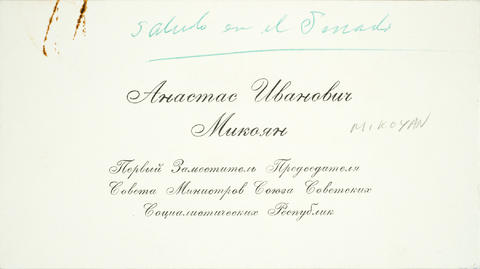 Saludo en el Senado
Анастас Иванович
Микоян
MIKOYAN
Первый Заместитель Председателя
Совета Министров Союза Советских
Социалистических Республик